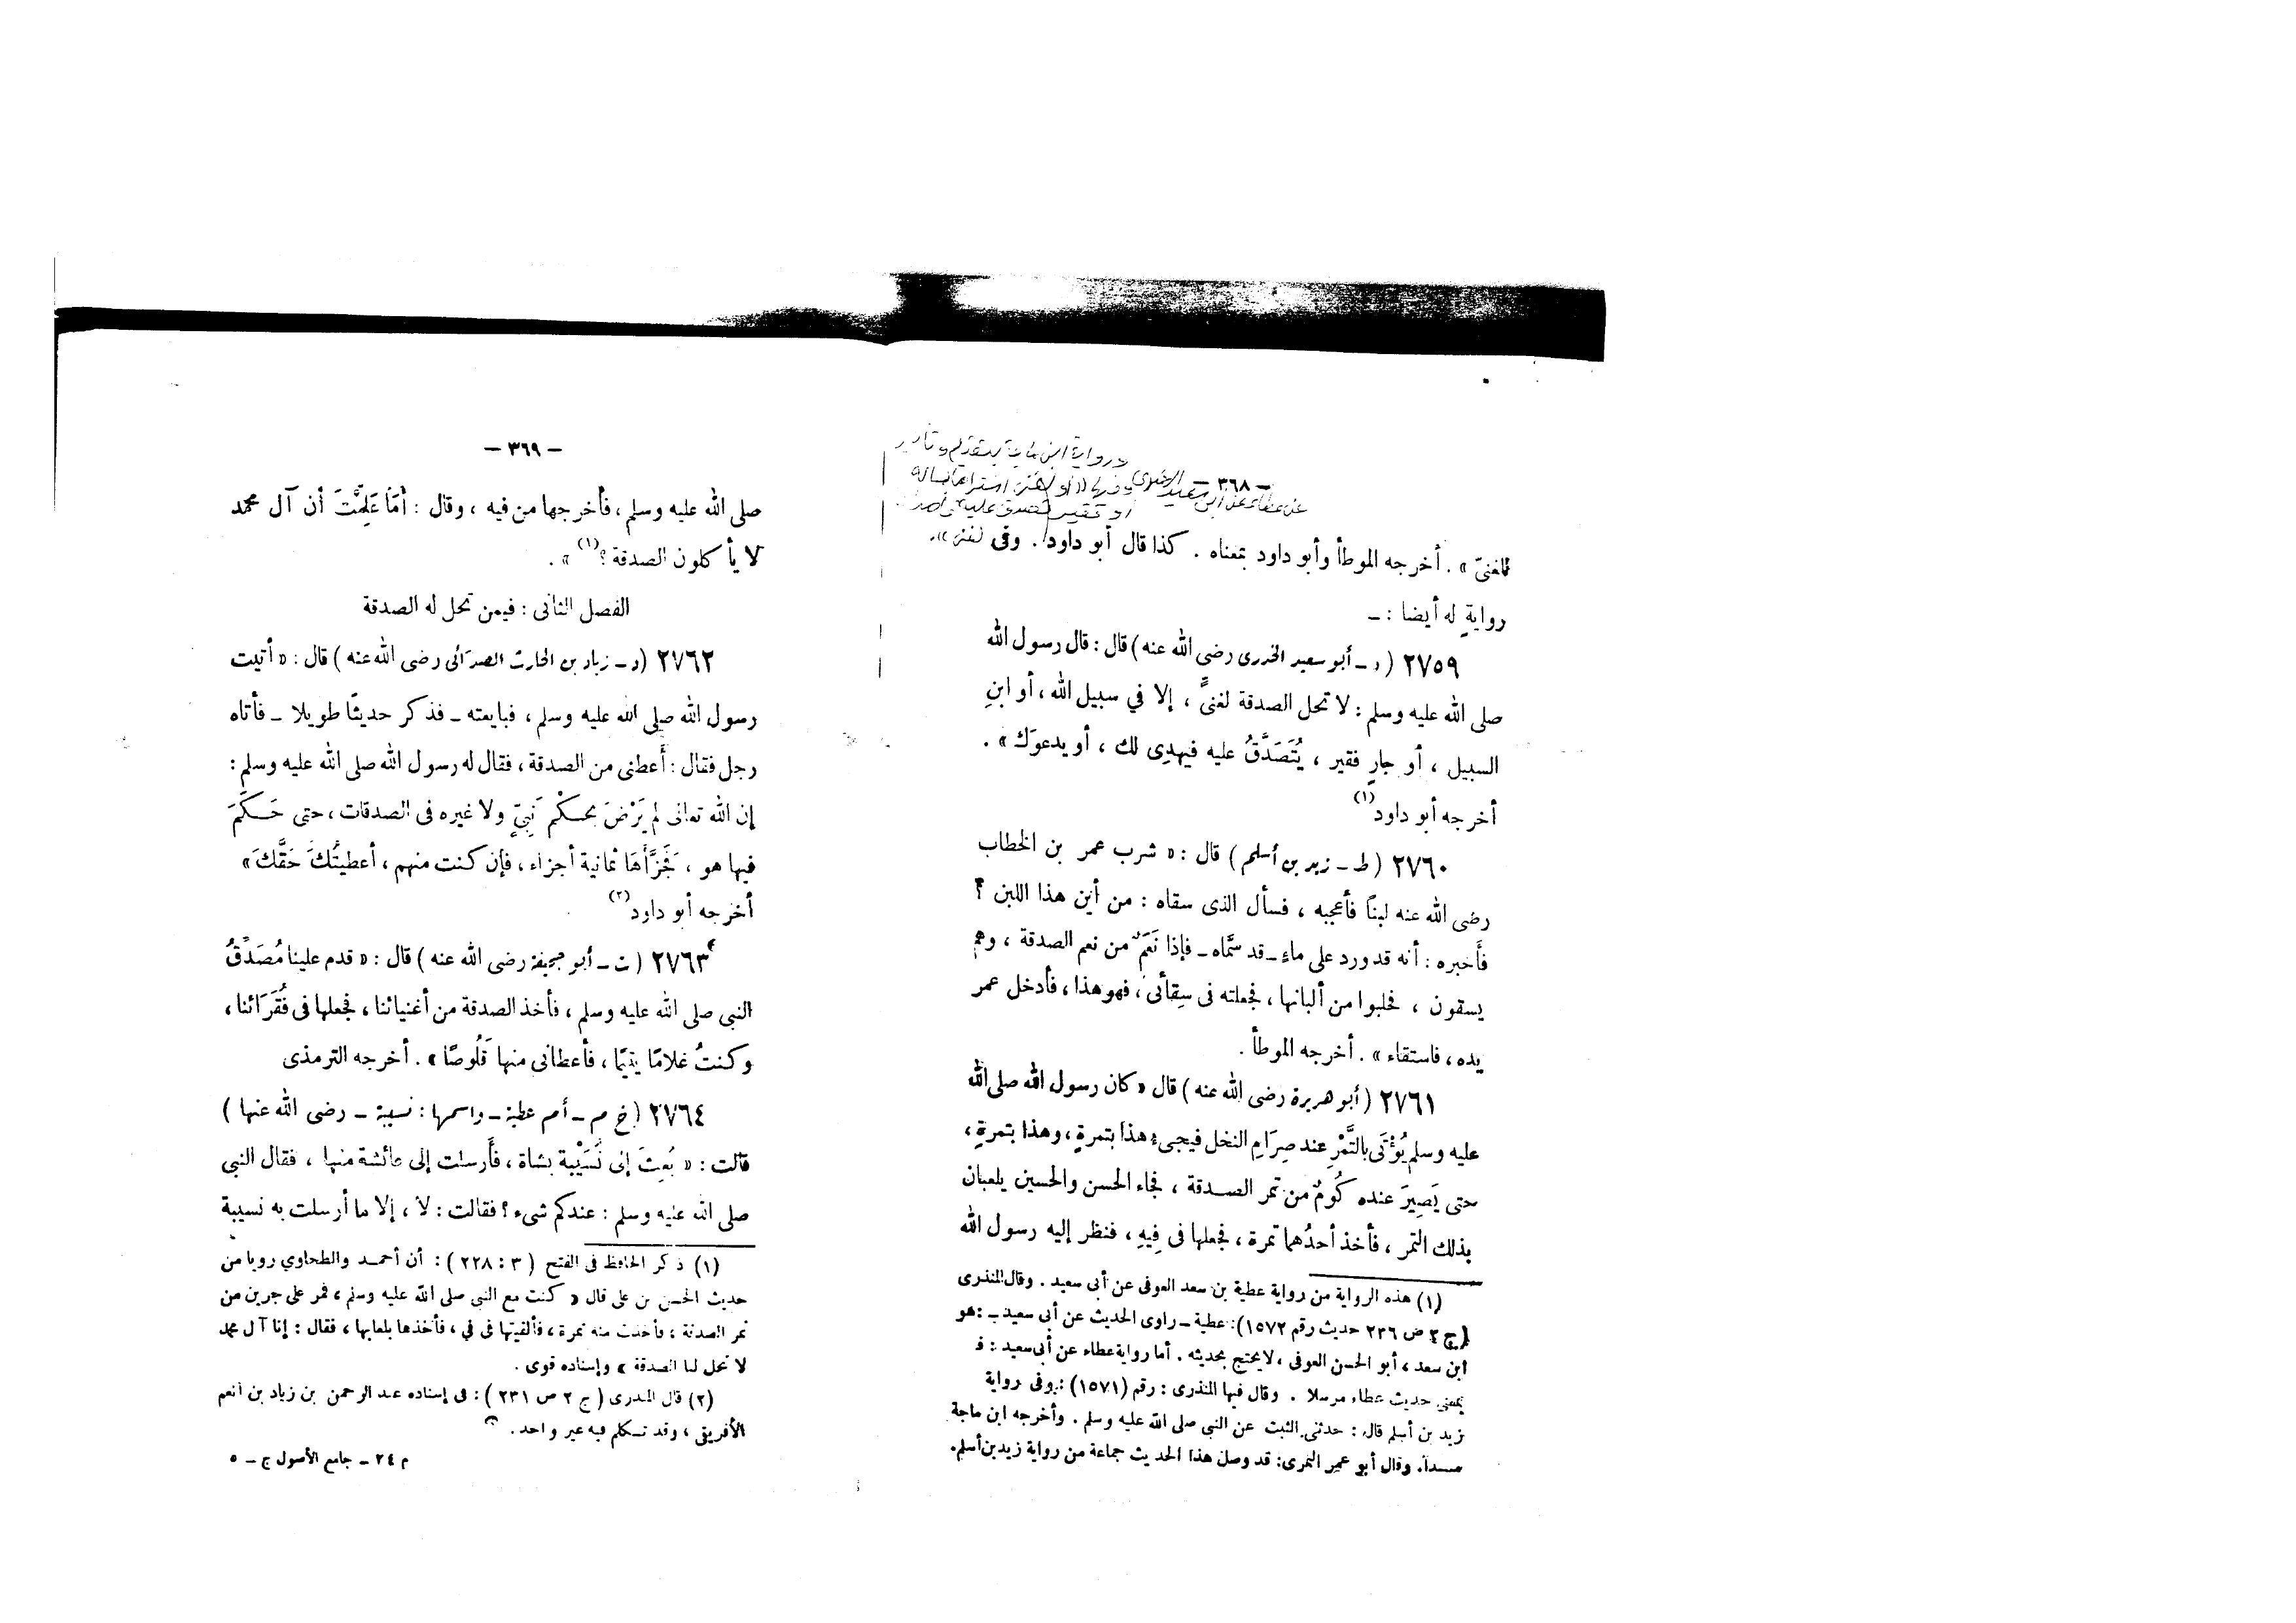 — ٣٦٨ —
للغنىّ » . أخرجه الموطأ وأبو داود بمعناه . كذا قال أبو داود . وفى
روايةٍ له أيضا : ـ
٢٧٥٩ ( د ـ أبو سعيد الخدرى رضى الله عنه ) قال : قال رسول الله
صلى الله عليه وسلم : لا تحل الصدقة لغنىٍّ ، إلا في سبيل الله ، أو ابنِ
السبيل ، أو جارٍ فقير ، يُتَصَدَّقُ عليه فيهدِى لك ، أو يدعوَك » .
أخرجه أبو داود (١)
٢٧٦٠ ( ط ـ زيد بن أسلم ) قال : « شرب عمر بن الخطاب
رضى الله عنه لبنًا فأعجبه ، فسأل الذى سقاه : من أين هذا اللبن ؟
فأخبره : أنه قد ورد على ماءٍ ـ قد سَمَّاه ـ فإذا نَعَمٌ من نعم الصدقة ، وهم
يسقون ، فحلبوا من ألبانها ، فجعلته فى سِقأئى ، فهو هذا ، فأدخل عمر
يده ، فاستقاء » . أخرجه الموطأ .
٢٧٦١ ( أبو هريرة رضى الله عنه ) قال « كان رسول الله صلى الله
عليه وسلم يُؤْتَى بالتَّمْرِ عند صِرَامِ النخل فيجىء هذا بتمرةٍ ، وهذا بتمرةٍ ،
حتى يَصِيرَ عنده كُومٌ من تمر الصدقة ، فجاء الحسن والحسين يلعبان
بذلك التمر ، فأخذ أحدُهما تمرة ، فجعلها فى فِيهِ ، فنظر إليه رسول الله
(١) هذه الرواية من رواية عطية بن سعد العوفى عن أبى سعيد . وقال المنذرى
( ج ٢ ص ٢٣٦ حديث رقم ١٥٧٢ ) : عطية ـ راوى الحديث عن أبى سعيد ـ : هو
ابن سعد ، أبو الحسن العوفى ، لا يحتج بحديثه . أما رواية عطاء عن أبى سعيد :
بمعنى حديث عطاء مرسلا . وقال فيها المنذرى : رقم ( ١٥٧١ ) : وفى رواية
يزيد بن أسلم قال : حدثنى الثبت عن النبي صلى الله عليه وسلم . وأخرجه ابن ماجة
مسنداً . وقال أبو عمر النمرى : قد وصل هذا الحديث جماعة من رواية زيد بن أسلم .
— ٣٦٩ —
صلى الله عليه وسلم ، فأخرجها من فيه ، وقال : أَمَا عَلِمْتَ أن آل محمد
لا يأكلون الصدقة ؟ (١) » .
الفصل الثانى : فيمن تحل له الصدقة
٢٧٦٢ ( د ـ زياد بن الحارث الصدائى رضى الله عنه ) قال : « أتيت
رسول الله صلى الله عليه وسلم ، فبايعته ـ فذكر حديثًا طويلا ـ فأتاه
رجل فقال : أَعطنى من الصدقة ، فقال له رسول الله صلى الله عليه وسلم :
إن الله تعالى لم يَرْضَ بحكْم نَبِيٍّ ولا غيره فى الصدقات ، حتى حَكَمَ
فيها هو ، فَجَزَّأَهَا ثمانية أجزاء ، فإن كنت منهم ، أعطيتُكَ حَقَّكَ »
أخرجه أبو داود (٢)
٢٧٦٣ ( ت ـ أبو جحيفة رضى الله عنه ) قال : « قدم علينا مُصَدِّقُ
النبى صلى الله عليه وسلم ، فأخذ الصدقة من أغنيائنا ، فجعلها فى فُقَرَائنا ،
وكنتُ غلامًا يتيًما ، فأعطانى منها قَلُوصًا » . أخرجه الترمذى
٢٧٦٤ ( خ م ـ أم عطية ـ واسمها : نسيبة ـ رضى الله عنها )
قالت : « بُعِثَ إلى نُسَيْبة بشاة ، فأَرسلت إلى عائشة منها ، فقال النبى
صلى الله عليه وسلم : عندكم شىء ؟ فقالت : لا ، إلا ما أرسلت به نسيبة
(١) ذكر الحافظ فى الفتح ( ٣ : ٢٢٨ ) : أن أحمد والطحاوي رويا من
حديث الحسن بن على قال « كنت مع النبي صلى الله عليه وسلم ، فمر على جرين من
تمر الصدقة ، فأخذت منه تمرة ، فألقيتها فى في ، فأخذها بلعابها ، فقال : إنا آل محمد
لا تحل لنا الصدقة » وإسناده قوى .
(٢) قال المنذرى ( ج ٢ ص ٢٣١ ) : فى إسناده عبد الرحمن بن زياد بن أنعم
الأفريقى ، وقد تكلم فيه غير واحد .
م ٢٤ ـ جامع الأصول ج ـ ٥